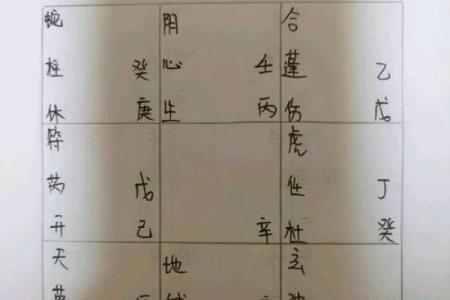 蛇 阴 合
柱 癸 心 壬 蓬 乙
休 庚 生 丙 伤 戊
符 虎
芮 戊 任 丁
开 己 辛 杜 癸
天 地 玄